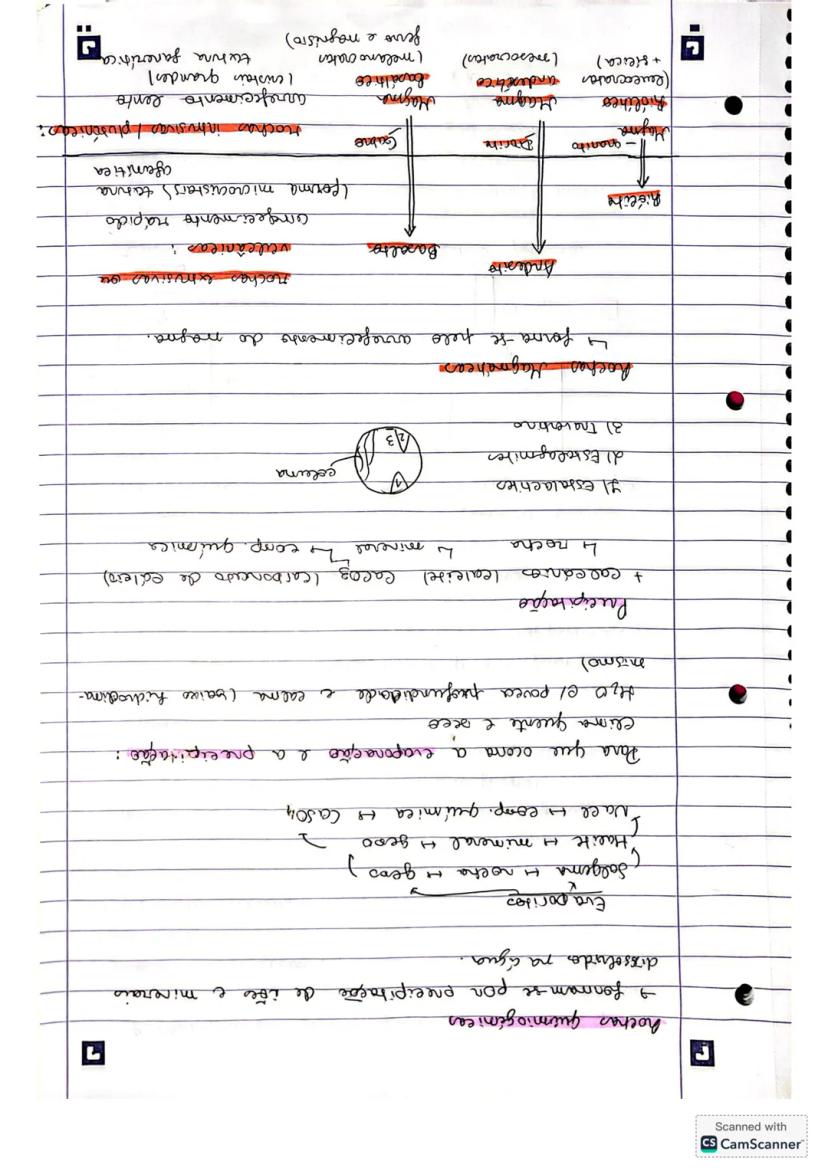 Rochas quimiogénicas
→ formam-se por precipitação de iões e minerais
dissolvidos na água.
Evaporitos
Salgema ↔ rocha ↔ gesso
Halite ↔ mineral ↔ gesso
NaCl ↔ comp. química ↔ CaSO4
Para que ocorra a evaporação e a precipitação:
Clima quente e seco
H2O c/ pouca profundidade e calma (baixo hidrodina-
mismo)
Precipitação
+ calcários (calcite) CaCO3 (carbonato de cálcio)
↳ rocha ↳ mineral ↳ comp. química
1) Estalactites
2) Estalagmites
3) Travertino
coluna
1
2
3
Rochas Magmáticas
↳ forma-se pelo arrefecimento do magma.
Andesito
Basalto
Riólito
rochas extrusivas ou
vulcânicas:
arrefecimento rápido
(forma microcristais) textura
afanítica
- granito
Diorito
Gabro
rochas intrusivas / plutónicas:
arrefecimento lento
(cristais grandes)
textura fanerítica
Magma
Riolítico
(leucocratas)
+ sílica)
Magma
andesítico
(mesocratas)
Magma
basáltico
(melanocratas
ferro e magnésio)
Scanned with
CS CamScanner